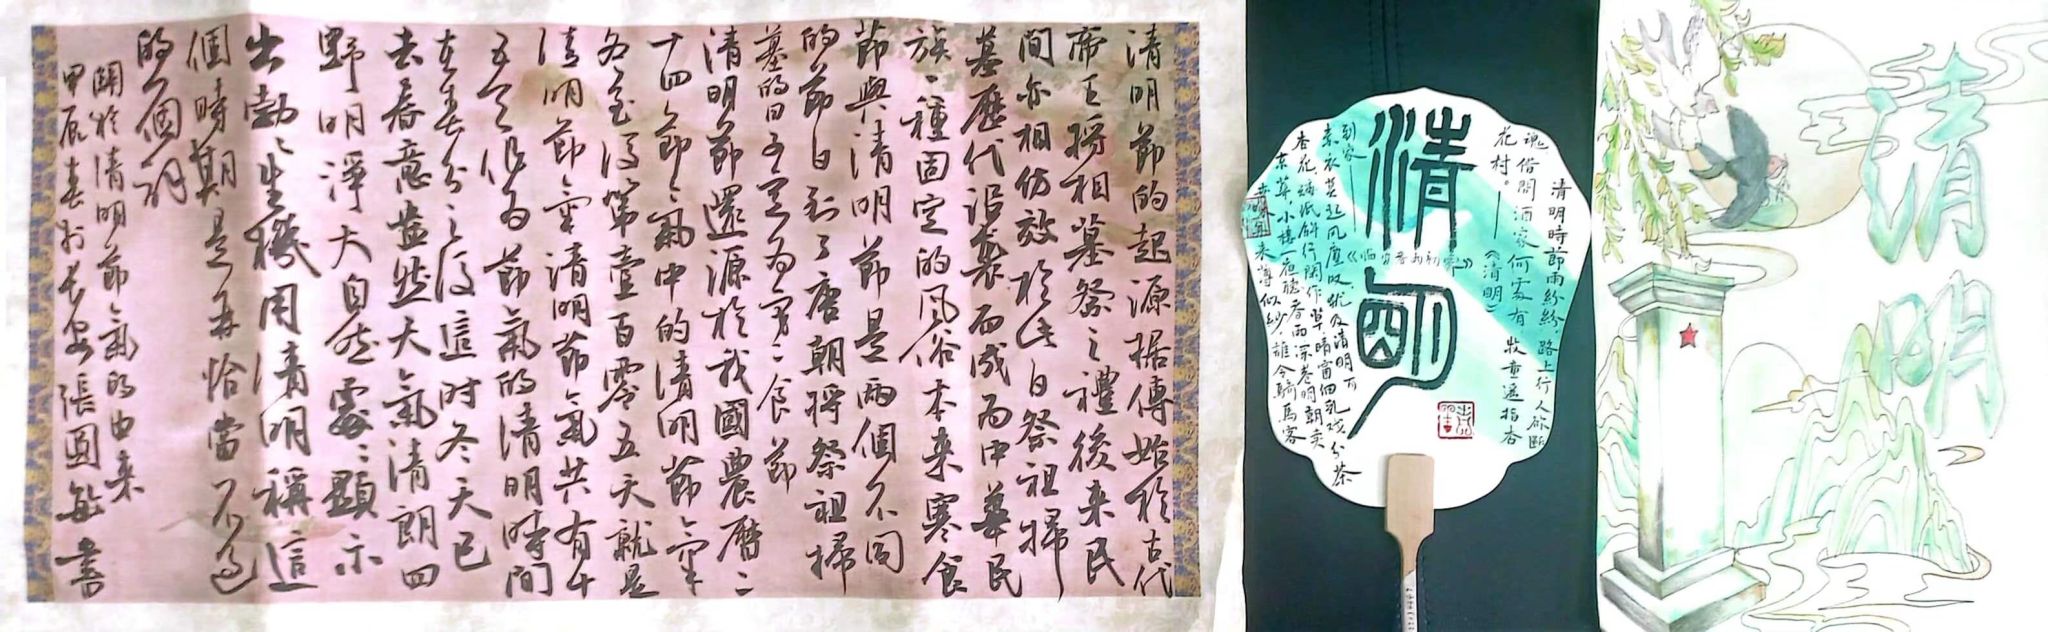 清明節的起源据傳始於古代
帝王将相墓祭之禮後来民
間亦相仿效於此日祭祖掃
墓歷代沿襲而成為中華民
族一種固定的風俗本来寒食
節與清明節是兩個不同
的節日到了唐朝将祭祖掃
墓的日子定為寒食節
清明節還源於我國農曆二
十四節氣中的清明節氣
冬至後第壹百零五天就是
清明節氣清明節氣共有十
五天作為節氣的清明時間
在春分之後這时冬天已
去春意盎然天氣清朗四
野明淨大自然處處顯示
出勃勃生機用清明稱這
個時期是再恰當不過
的一個詞
關於清明節氣的由来
甲辰春於長安張圓敏書
清明
清明時節雨紛紛路上行人欲断
魂借問酒家何處有牧童遥指杏
花村。——《清明》
《临安春雨初霁》
世味年来薄似纱誰令騎馬客
京華小樓一夜聽春雨深巷明朝卖
杏花矮纸斜行閑作草晴窗细乳戏分茶
素衣莫起风塵叹犹及清明可
到家——
清明